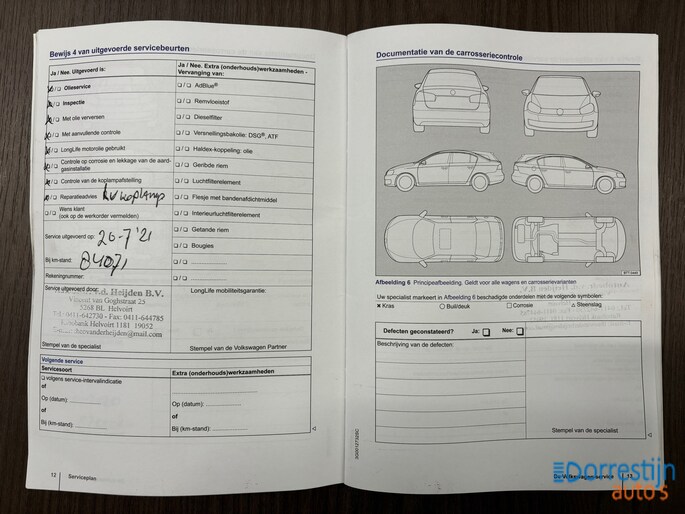 Bewijs 4 van uitgevoerde servicebeurten
Ja / Nee. Uitgevoerd is:
☒/❏ Olieservice
☒/❏ Inspectie
☒/❏ Met olie verversen
☒/❏ Met aanvullende controle
☒/❏ LongLife motorolie gebruikt
☒/❏ Controle op corrosie en lekkage van de aard-
gasinstallatie
☒/❏ Controle van de koplampafstelling
☒/❏ Reparatieadvies LV koplamp
❏/❏ Wens klant:
(ook op de werkorder vermelden)
Service uitgevoerd op: 20-7 '21
Bij km-stand: 84071
Rekeningnummer:
Service uitgevoerd door:
v.d. Heijden B.V.
Vincent van Goghstraat 25
5268 BL Helvoirt
Tel: 0411-642730 - Fax: 0411-644785
Rabobank Helvoirt 1181 19052
Stempel van de specialist
Ja / Nee. Extra (onderhouds)werkzaamheden -
Vervanging van:
❏/❏ AdBlue®
❏/❏ Remvloeistof
❏/❏ Dieselfilter
❏/❏ Versnellingsbakolie: DSG®, ATF
❏/❏ Haldex-koppeling: olie
❏/❏ Geribde riem
❏/❏ Luchtfilterelement
❏/❏ Flesje met bandenafdichtmiddel
❏/❏ Interieurluchtfilterelement
❏/❏ Getande riem
❏/❏ Bougies
❏/❏ ....................
❏/❏ ....................
LongLife mobiliteitsgarantie:
Stempel van de Volkswagen Partner
Volgende service
Servicesoort
❏ volgens service-intervalindicatie
of
Op (datum): ....................
of
Bij (km-stand): ....................
Extra (onderhouds)werkzaamheden
....................
Op (datum): ....................
of
Bij (km-stand): ....................
12 Serviceplan
Documentatie van de carrosseriecontrole
B7T-0440
Afbeelding 6 Principeafbeelding. Geldt voor alle wagens en carrosserievarianten
Uw specialist markeert in Afbeelding 6 beschadigde onderdelen met de volgende symbolen:
× Kras ○ Buil/deuk □ Corrosie △ Steenslag
Defecten geconstateerd? Ja: ❏ Nee: ❏
Beschrijving van de defecten:
Stempel van de specialist
De Volkswagen service 13
Dorrestijn
auto's